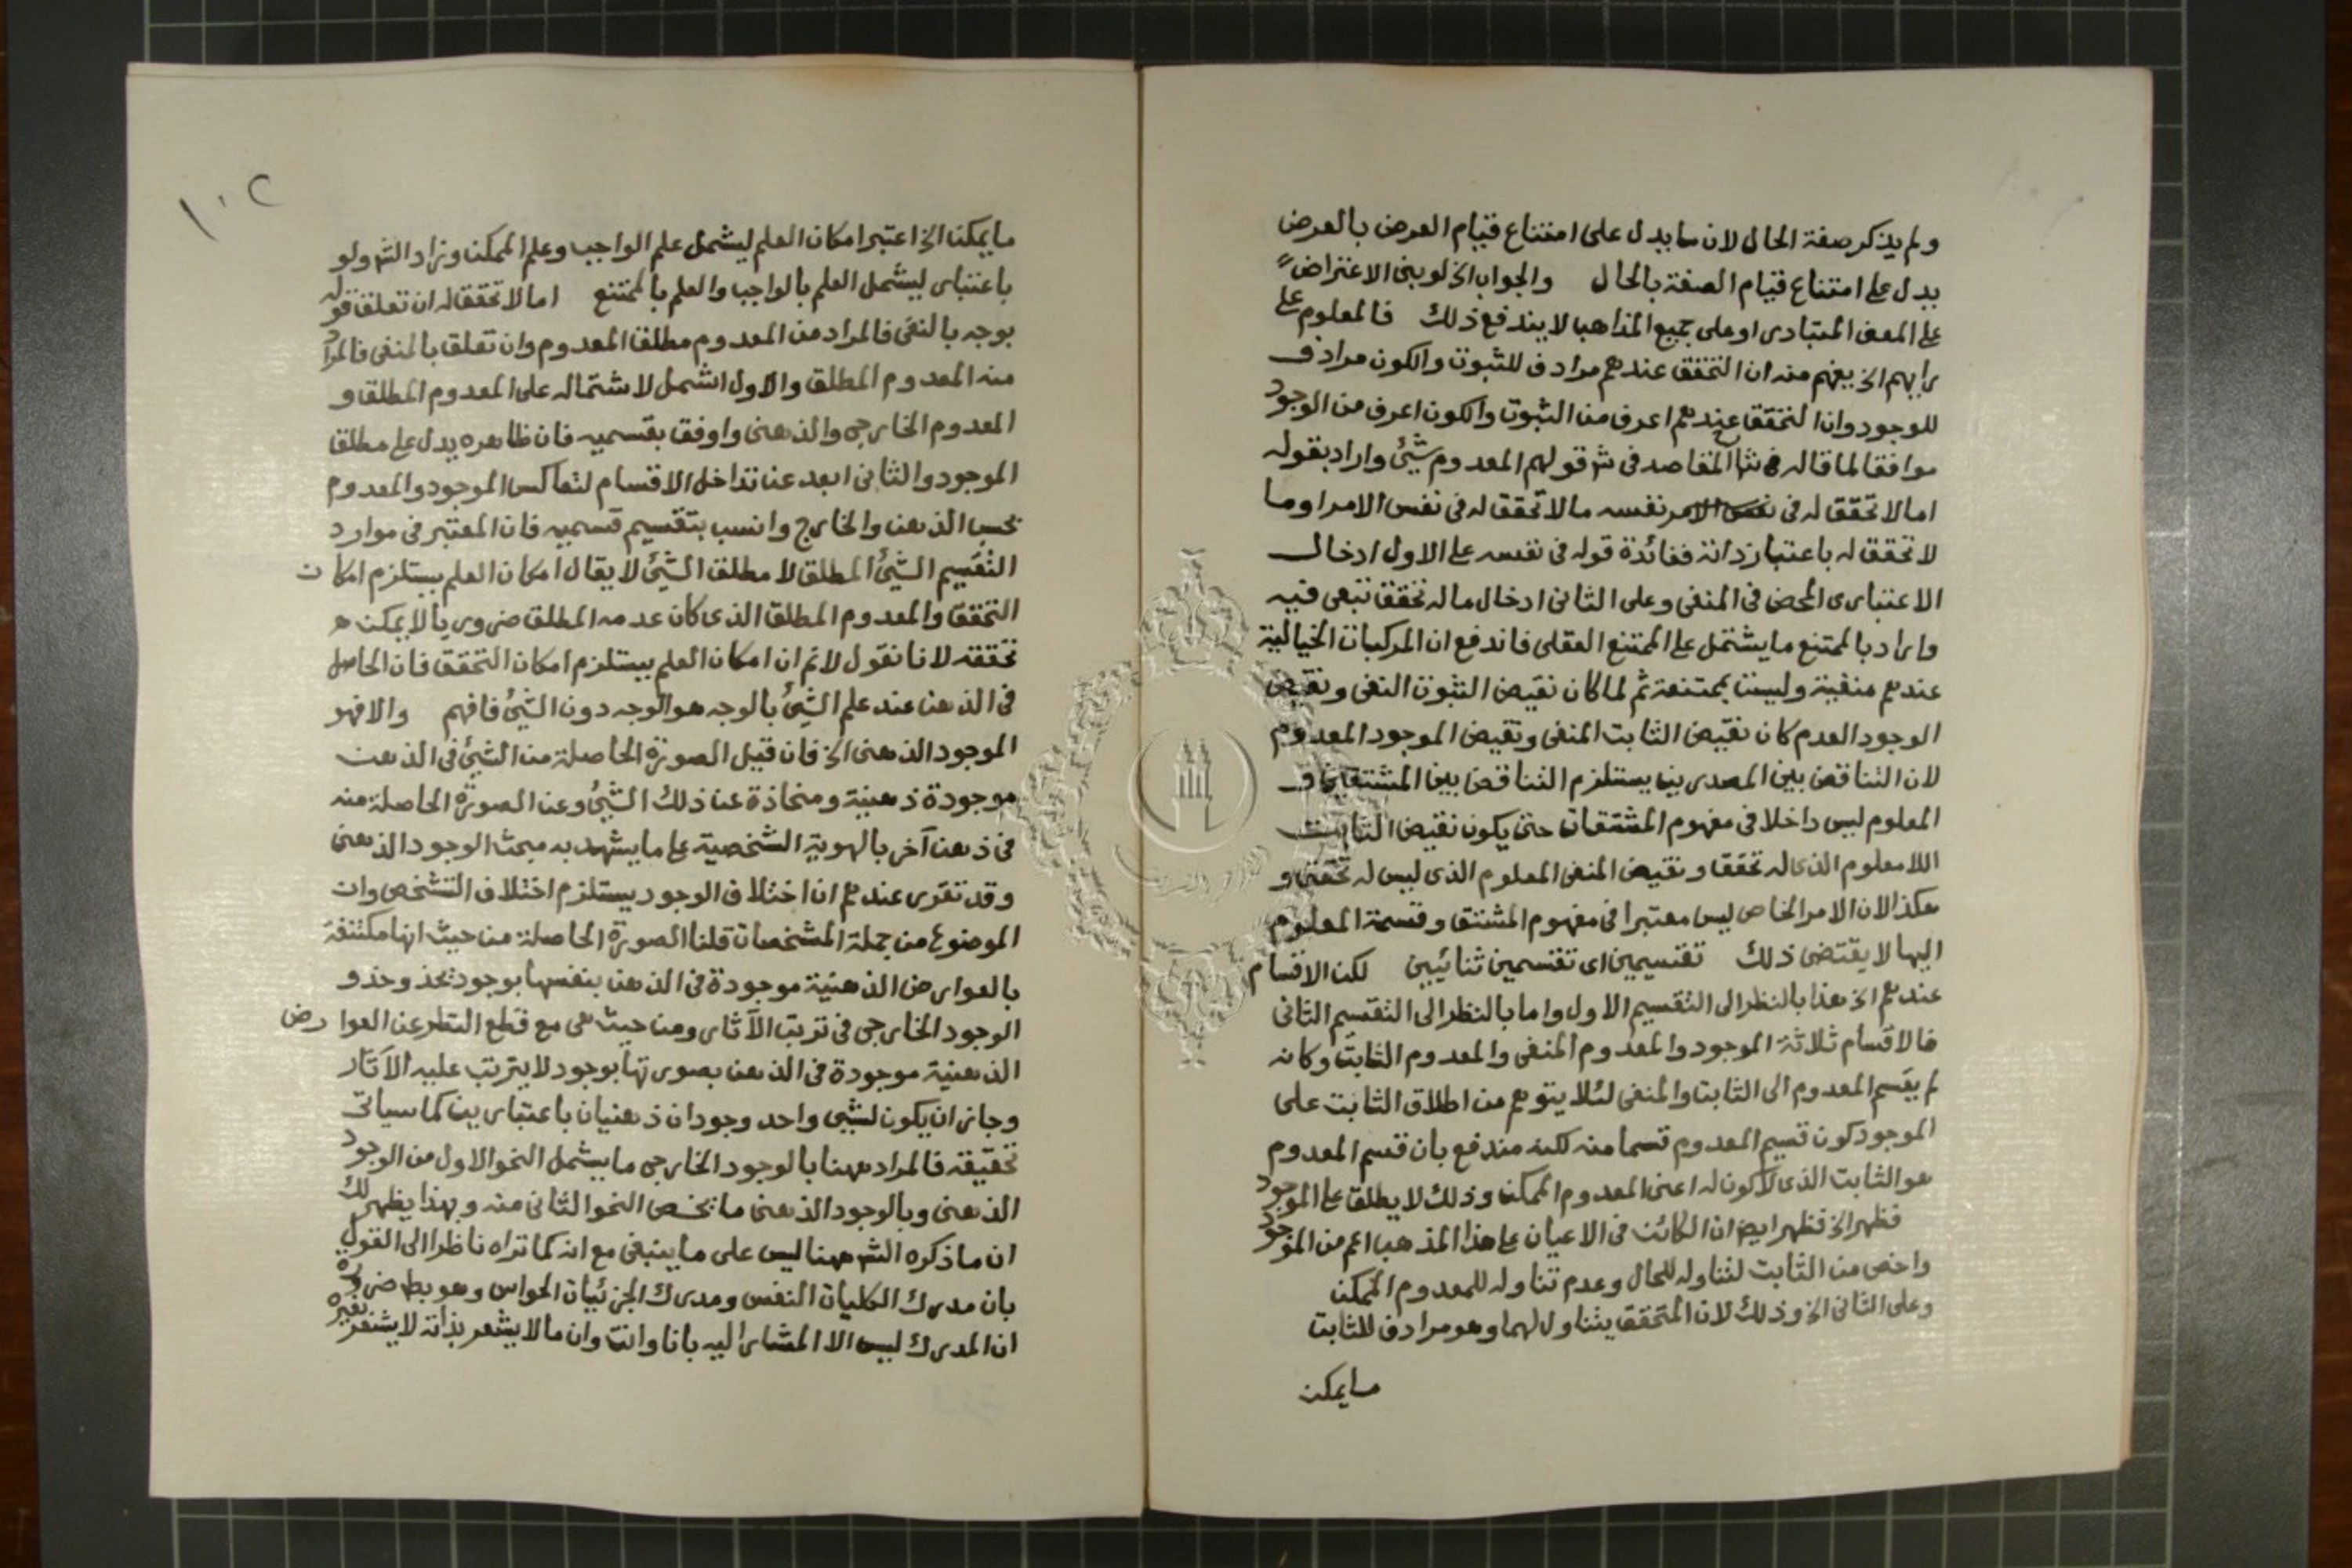 ولم يذكر صفة الحال لان ما يدل على امتناع قيام العرض بالعرض
يدل على امتناع قيام الصفة بالحال والجواب الخ لو بنى الاعتراض
على المعنى المتبادر او على جميع المذاهب لا يندفع ذلك فالمعلوم على
رايهم الخ يفهم منه ان التحقق عندهم مرادف للثبوت والكون مرادف
للوجود وان التحقق عندهم اعرف من الثبوت والكون اعرف من الوجود
موافقا لما قاله في شرح المقاصد في شرح قولهم المعدوم شيئ واراد بقوله
اما لا تحقق له في نفسه ما لا تحقق له في نفس الامر او ما
لا تحقق له باعتبار ذاته ففائدة قوله في نفسه على الاول ادخال
الاعتبارى المحض في المنفى وعلى الثانى ادخال ما له تحقق تبعى فيه
واراد بالممتنع ما يشتمل على الممتنع العقلى فاندفع ان المركبات الخيالية
عندهم منفية وليست بممتنعة ثم لما كان نقيض الثبوت النفى ونقيض
الوجود العدم كان نقيض الثابت المنفى ونقيض الموجود المعدوم
لان التناقض بين المصدرين يستلزم التناقض بين المشتقين و
المعلوم ليس داخلا في مفهوم المشتقات حتى يكون نقيض الثابت
اللا معلوم الذى له تحقق ونقيض المنفى المعلوم الذى ليس له تحقق و
هكذا لان الامر الخاص ليس معتبرا في مفهوم المشتق وقسمة المعلوم
اليها لا يقتضى ذلك تقسيمين اى تقسيمين ثنائيين لكن الاقسام
عندهم الخ هذا بالنظر الى التقسيم الاول واما بالنظر الى التقسيم الثانى
فالاقسام ثلاثة الموجود والمعدوم المنفى والمعدوم الثابت وكانه
لم يقسم المعدوم الى الثابت والمنفى لئلا يتوهم من اطلاق الثابت على
الموجود كون قسيم المعدوم قسما منه لكنه مندفع بان قسم المعدوم
هو الثابت الذى لا كون له اعنى المعدوم الممكن وذلك لا يطلق على الموجود
فظهر الخ فظهر ايض ان الكائن في الاعيان على هذا المذهب اعم من الموجود
واخص من الثابت لتناوله للحال وعدم تناوله للمعدوم الممكن
وعلى الثانى الخ وذلك لان المتحقق يتناولهما وهو مرادف للثابت
ما يمكن
١٠٢
ما يمكن الخ اعتبر امكان العلم ليشمل علم الواجب وعلم الممكن وزاد الشر ولو
باعتبار ليشمل العلم بالواجب والعلم بالممتنع اما لا تحقق له ان تعلق قوله
بوجه بالنفى فالمراد من المعدوم مطلق المعدوم وان تعلق بالمنفى فالمراد
منه المعدوم المطلق والاول اشمل لاشتماله على المعدوم المطلق و
المعدوم الخارجى والذهنى واوفق بقسميه فان ظاهره يدل على مطلق
الموجود والثانى ابعد عن تداخل الاقسام لتعاكس الموجود والمعدوم
بحسب الذهن والخارج وانسب بتقسيم قسميه فان المعتبر في موارد
التقسيم الشيئ المطلق لا مطلق الشيئ لا يقال امكان العلم يستلزم امكان
التحقق والمعدوم المطلق الذى كان عدمه المطلق ضروريا لا يمكن
تحققه لانا نقول لا نم ان امكان العلم يستلزم امكان التحقق فان الحاصل
في الذهن عند علم الشيئ بالوجه هو الوجه دون الشيئ فافهم والا فهو
الموجود الذهنى الخ فان قيل الصورة الحاصلة من الشيئ في الذهن
موجودة ذهنية ومنحازة عن ذلك الشيئ وعن الصورة الحاصلة منه
في ذهن آخر بالهوية الشخصية على ما يشهد به مبحث الوجود الذهنى
وقد تقرر عندهم ان اختلاف الوجود يستلزم اختلاف التشخص وان
الموضوع من جملة المشخصات قلنا الصورة الحاصلة من حيث انها مكتنفة
بالعوارض الذهنية موجودة في الذهن بنفسها بوجود يحذو حذو
الوجود الخارجى في ترتب الآثار ومن حيث هى مع قطع النظر عن العوارض
الذهنية موجودة في الذهن بصورتها بوجود لا يترتب عليه الآثار
وجاز ان يكون لشيئ واحد وجودان ذهنيان باعتبارين كما سياتى
تحقيقه فالمراد ههنا بالوجود الخارجى ما يشمل النحو الاول من الوجود
الذهنى وبالوجود الذهنى ما يخص النحو الثانى منه وبهذا يظهر لك
ان ما ذكره الشر ههنا ليس على ما ينبغى مع انه كما تراه ناظرا الى القول
بان مدرك الكليات النفس ومدرك الجزئيات الحواس وهو بط ضرورة
ان المدرك ليس الا المشار اليه بانا وانت وان ما لا يشعر بذاته لا يشعر بغيره